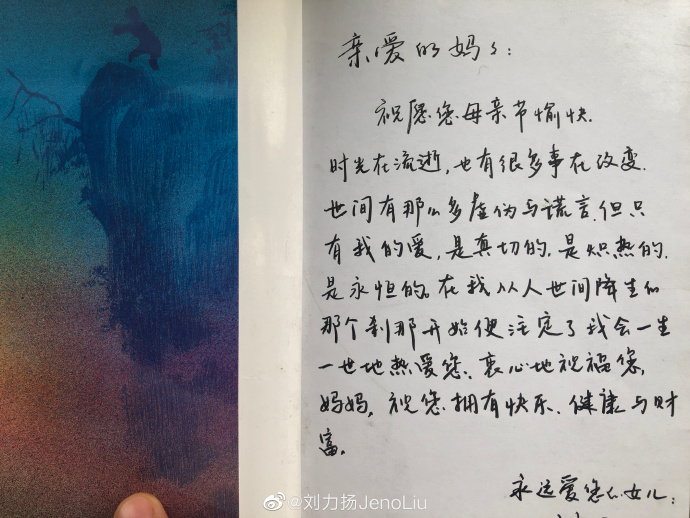 亲爱的妈々：
祝愿您母亲节愉快.
时光在流逝,也有很多事在改变.
世间有那么多虚伪与谎言,但只
有我的爱,是真切的.是炽热的.
是永恒的。在我从人世间降生的
那个刹那开始便注定了我会一生
一世地热爱您、衷心地祝福您,
妈妈,祝您拥有快乐、健康与财
富。
永远爱您的女儿：
@刘力扬JenoLiu